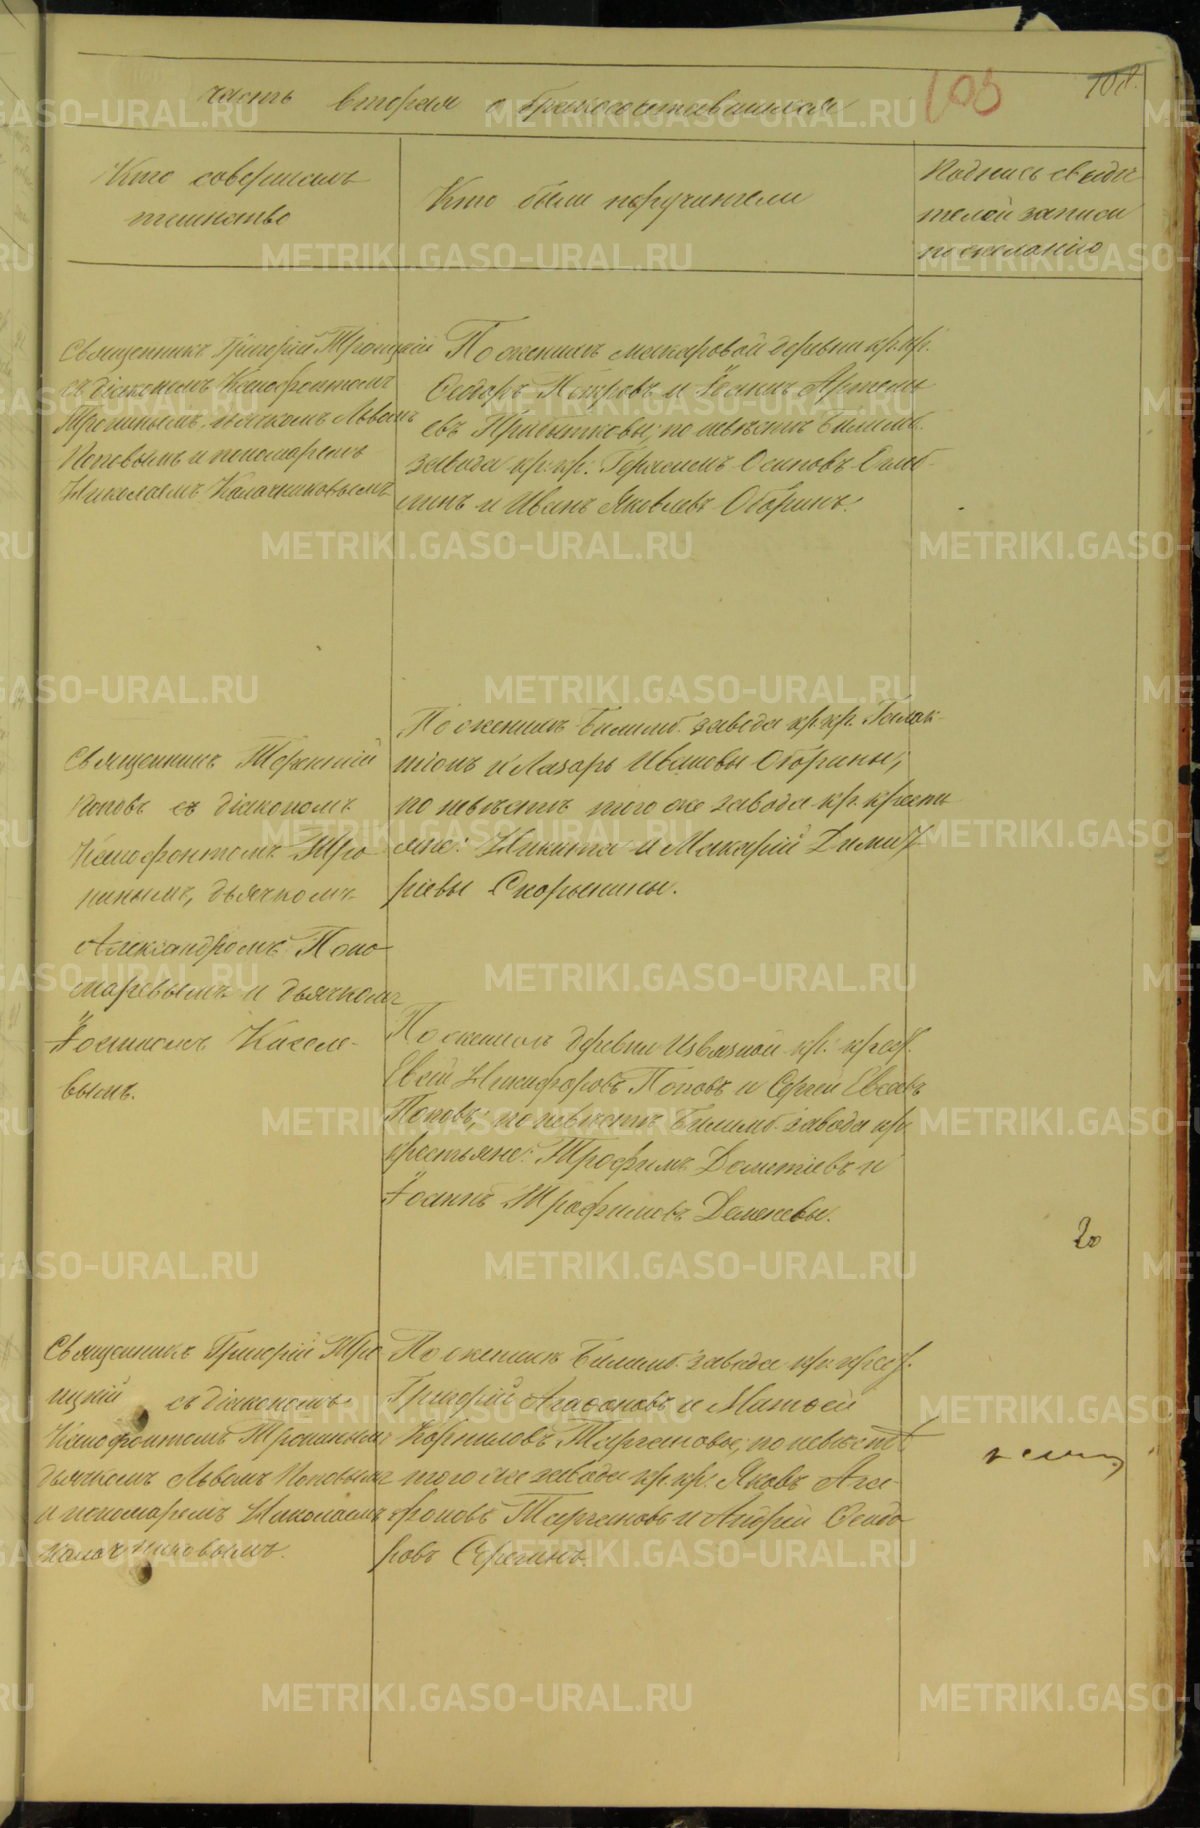 часть вторая о бракосочетавшихся
103
Кто совершалъ
таинство
Кто были поручители
Подпись свиде
телей записи
по желанію
Священникъ Григорій Троицкій
съ діакономъ Ксенофонтомъ
Трониномъ, дьячкомъ Львомъ
Поповымъ и пономаремъ
Николаемъ Калачниковымъ
По женихѣ макаровой деревни кр. кр.
Сидоръ Петровъ и Іоаннъ Артемь
евъ Прибытковы; по невѣстѣ Билимб.
завода кр. кр. Герасимъ Осиповъ
и Иванъ Яковлевъ Оборинъ.
Священникъ Терентій
Поповъ съ діакономъ
Ксенофонтомъ Тро
нинымъ, дьячкомъ
Александромъ Поно
маревымъ и дьячкомъ
Іоанномъ Киселе-
вымъ.
По женихѣ Билимб. завода кр. кр. Галак-
тіонъ и Лазарь Ивановы Оборины;
по невѣстѣ того же завода кр. кресть
яне: Никита и Макарій Димит
ріевы Скорынины.
По женихѣ деревни Извязной кр. крест.
Евсей Никифоровъ Поповъ и Сергей Евсеевъ
Поповъ; по невѣстѣ Билимб. завода кр.
крестьяне: Трофимъ Дометіевъ и
Іоаннъ Трофимовъ Деменевы.
20
Священникъ Григорій Тро
ицкій съ діакономъ
Ксенофонтомъ Тронинымъ
дьячкомъ Львомъ Поповымъ
и пономаремъ Николаемъ
Калачниковымъ.
По женихѣ Билимб. завода кр. крест.
Григорій Агафоновъ и Матвей
Корниловъ; по невѣстѣ
того же завода кр. кр. Яковъ Ага-
фоновъ и Андрей Сидо
ровъ Серегинъ.
METRIKI.GASO-URAL.RU